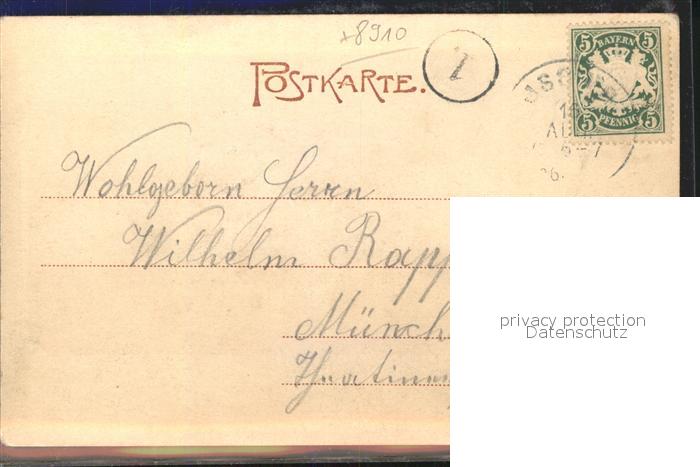 +8910
POSTKARTE.
1
5 BAYERN 5
5 PFENNIG 5
6.
Wohlgeborn Herrn
Wilhelm Rapp
Münch
Theatiner
privacy protection
Datenschutz